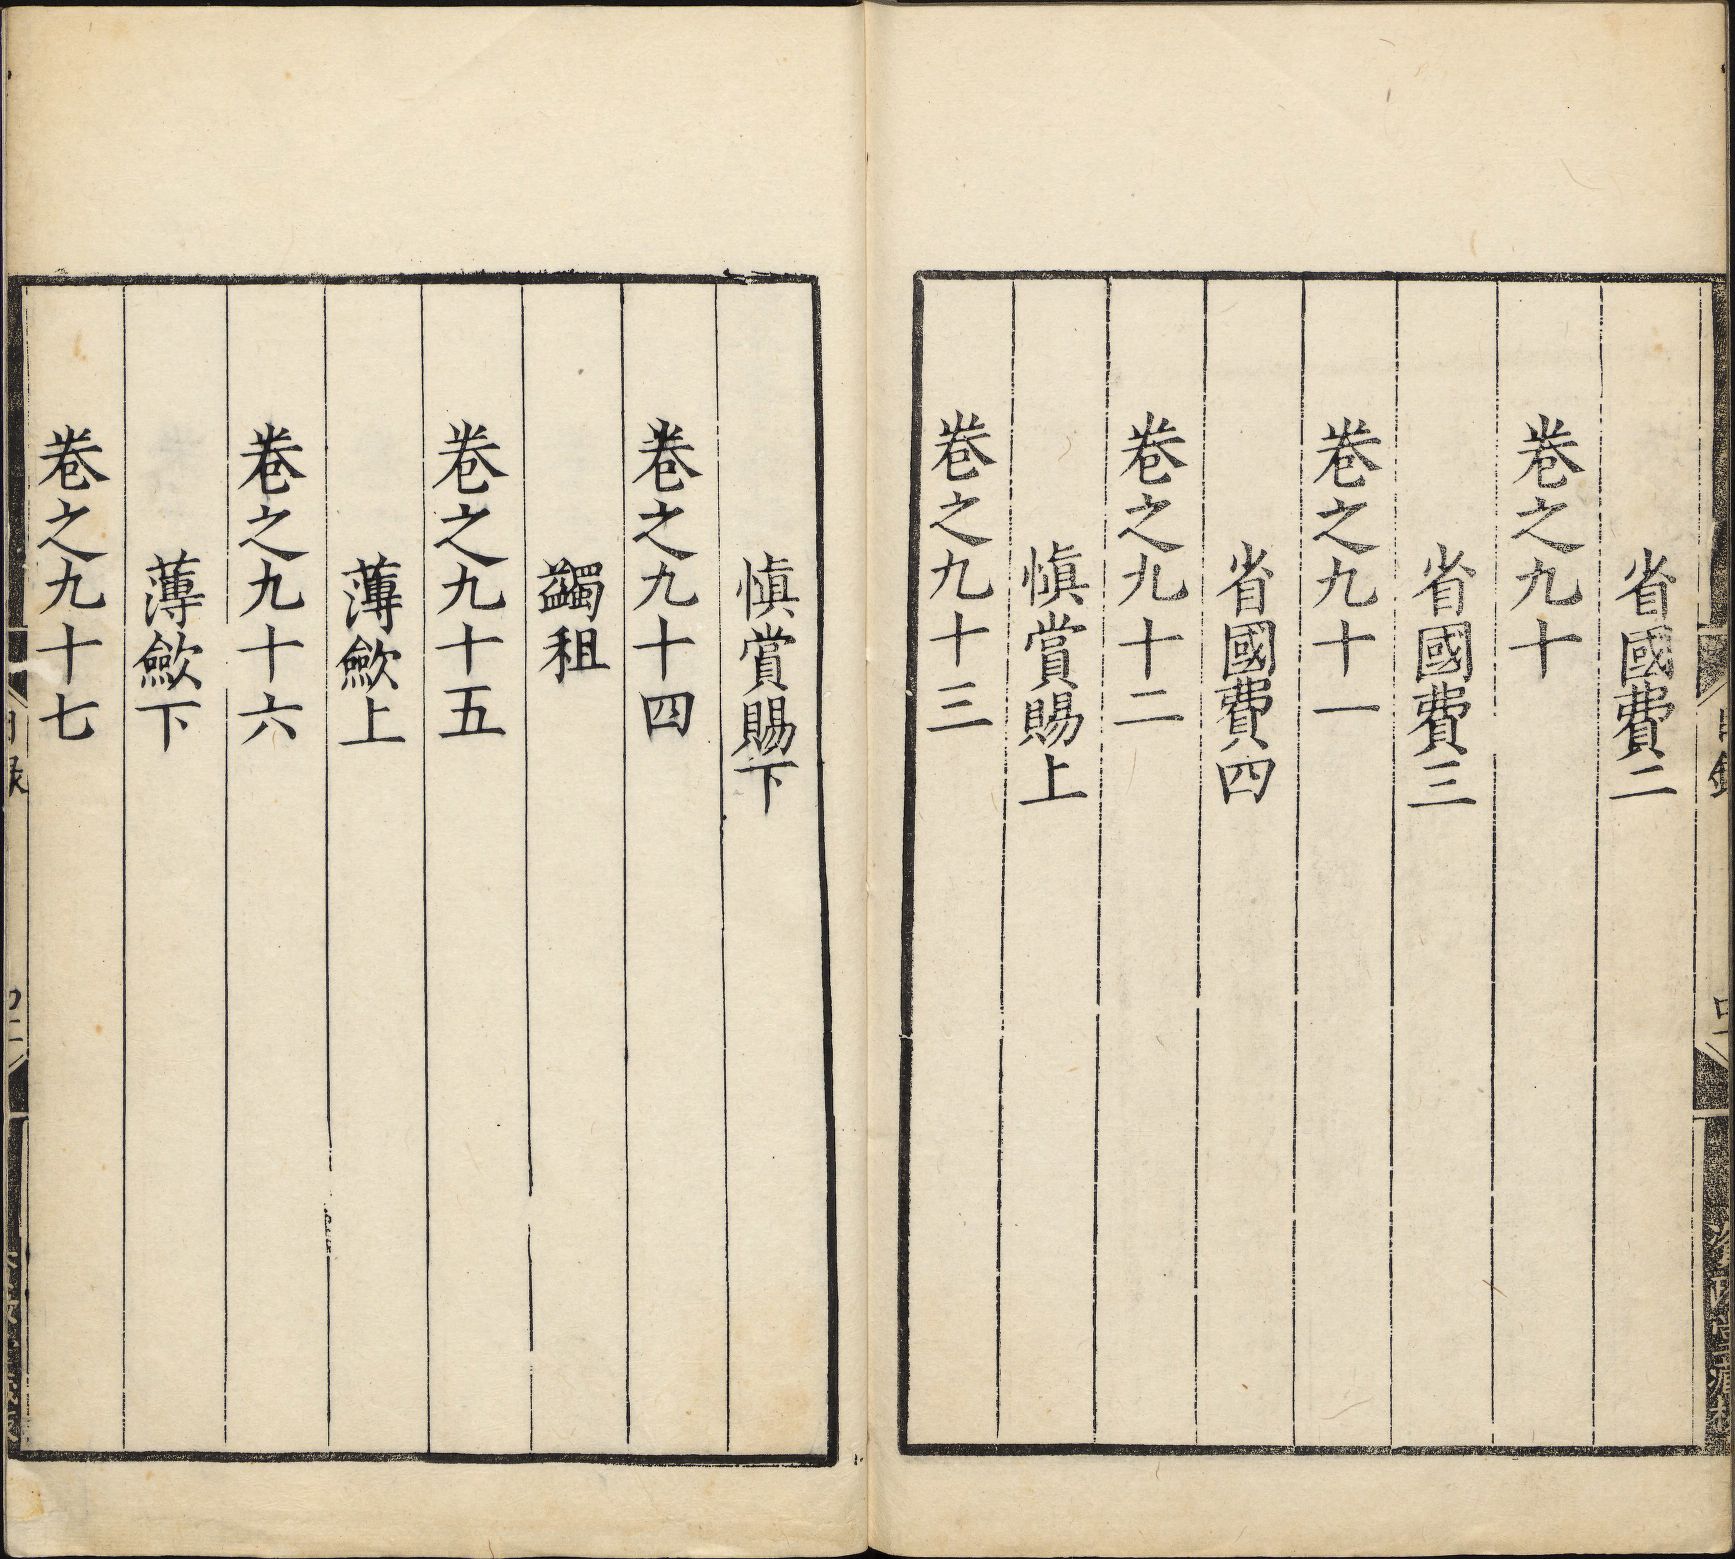 省國費二
卷之九十
省國費三
卷之九十一
省國費四
卷之九十二
愼賞賜上
卷之九十三
愼賞賜下
卷之九十四
蠲租
卷之九十五
薄歛上
卷之九十六
薄歛下
卷之九十七